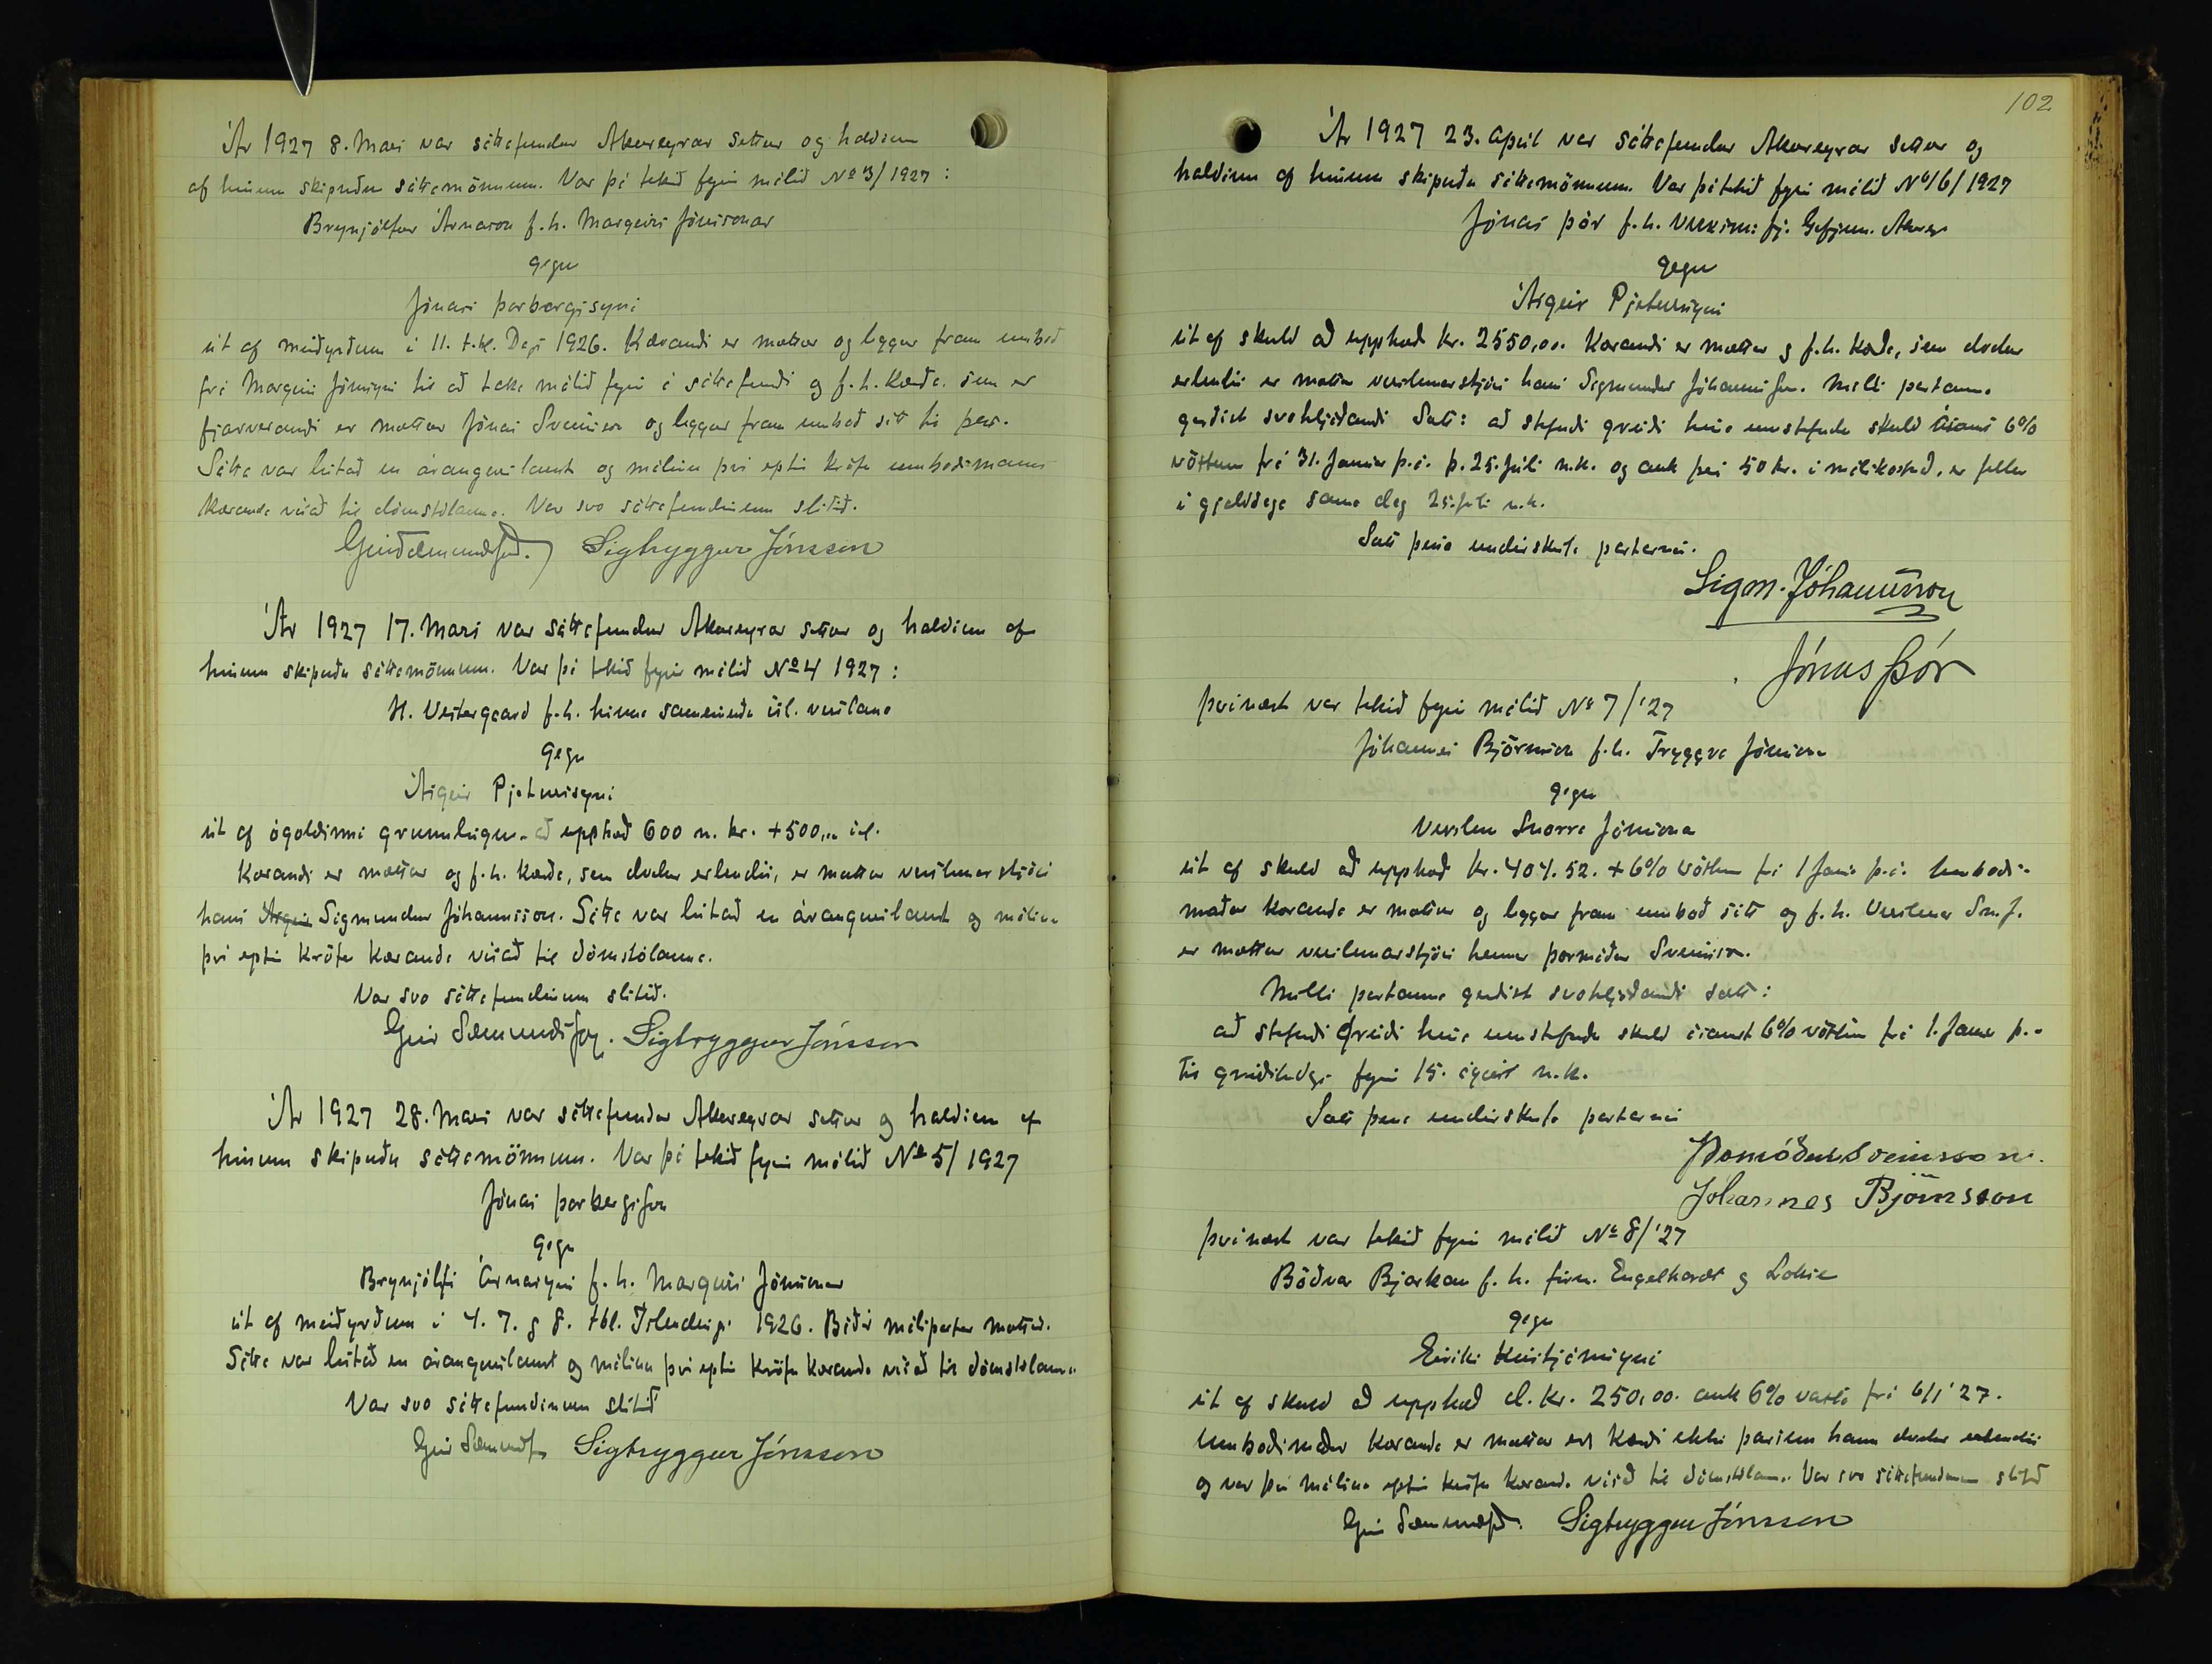 Ár 1927 8. Mars var sáttafundur Akureyrar settur og haldinn
af hinum skipuðu sáttamönnum. Var þá tekið fyrir málið No 3/1927:
Brynjólfur Árnason f.h. Margeirs Jónssonar
gegn
Jónasi Þorbergssyni
út af meiðyrðum í 11. t.bl. Dags 1926. Kærandi er mættur og leggur fram umboð
frá Margeiri Jónssyni til að taka málið fyrir á sáttafundi og f.h. kærða, sem er
fjarverandi er mættur Jónas Sveinsson og leggur fram umboð sitt til þess.
Sátta var leitað en árangurslaust og málinu því eptir kröfu umboðsmanns
kæranda vísað til dómstólanna. Var svo sáttafundinum slitið.
Geir Sæmundsson. Sigtryggur Jónsson
Ár 1927 17. Mars var sáttafundur Akureyrar settur og haldinn af
hinum skipuðu sáttamönnum. Var þá tekið fyrir málið No 4 1927:
H. Vestergaard f.h. hinna sameinuðu ísl. verslana
gegn
Ásgeir Pjeturssyni
út af ógoldinni grunnleigu að upphæð 600 n. kr. + 500,00 ísl.
Kærandi er mættur og f.h. kærða, sem dvelur erlendis, er mættur verslunarstjóri
hans Ásgeir Sigmundur Jóhannsson. Sátta var leitað en árangurslaust og málinu
því eptir kröfu kæranda vísað til dómstólanna.
Var svo sáttafundinum slitið.
Geir Sæmundsson. Sigtryggur Jónsson
Ár 1927 28. Mars var sáttafundur Akureyrar settur og haldinn af
hinum skipuðu sáttamönnum. Var þá tekið fyrir málið No 5/1927
Jónas Þorbergsson
gegn
Brynjólfi Árnasyni f.h. Margeirs Jónssonar
út af meiðyrðum í 4. 7. og 8. tbl. Íslendings 1926. Báðir málspartar mættir.
Sátta var leitað en árangurslaust og málinu því eptir kröfu kæranda vísað til dómstólanna
Var svo sáttafundinum slitið
Geir Sæmundsson Sigtryggur Jónsson
102
Ár 1927 23. Apríl var sáttafundur Akureyrar settur og
haldinn af hinum skipuðu sáttamönnum. Var þá tekið fyrir málið No 6/1927
Jónas Þór f.h. Verksm.fj. Gefjun. Akureyri
gegn
Ásgeir Pjeturssyni
út af skuld að upphæð kr. 2550,00. Kærandi er mættur og f.h. kærða, sem dvelur
erlendis er mættur verslunarstjóri hans Sigmundur Jóhannsson. Milli partanna
gerðist svohljóðandi Sátt: að stefndi greiði hina umstefndu skuld ásamt 6%
vöxtum frá 31. Janúar þ.á. þ. 25. Júlí n.k. og auk þess 50 kr. í málskostnað, er fellur
í gjalddaga sama dag 25. júlí n.k.
Sátt þessa undirskrifa partarnir.
Sigm. Jóhannsson
Jónas Þór
Þvínæst var tekið fyrir málið No 7/'27
Jóhannes Björnsson f.h. Tryggva Jónssonar
gegn
Verslun Snorra Jónssonar
út af skuld að upphæð kr. 404.52. + 6% vöxtum frá 1 Janúar þ.á. Umboðs-
maður kæranda er mættur og leggur fram umboð sitt og f.h. Verslunar Sn. J.
er mættur verslunarstjóri hennar Þormóður Sveinsson.
Milli partanna gerðist svohljóðandi sátt:
að stefndi greiði hina umstefndu skuld ásamt 6% vöxtum frá 1. Janúar þ.á.
til greiðsludags fyrir 15. ágúst n.k.
Sátt þessa undirskrifa partarnir
Þormóður Sveinsson.
Jóhannes Björnsson
Þvínæst var tekið fyrir málið No 8/'27
Böðvar Bjarkan f.h. firm. Engelhardt og Lohse
gegn
Eiríki Kristjánssyni
út af skuld að upphæð d. kr. 250,00. auk 6% vaxta frá 6/1 '27.
Umboðsmaður kæranda er mættur en kærði ekki þar sem hann dvelur erlendis
og var því málinu eptir kröfu kæranda vísað til dómstólanna. Var svo sáttafundinum slitið
Geir Sæmundsson. Sigtryggur Jónsson